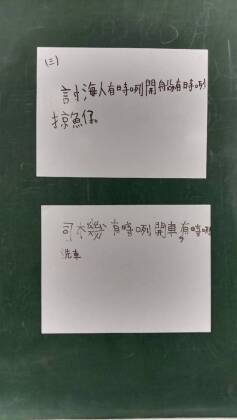 (三)
討海人有時咧開船有時咧
掠魚仔。
司機有時咧開車,有時咧
洗車